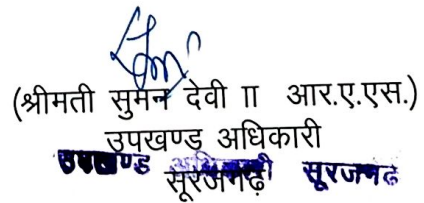 (श्रीमती सुमन देवी II आर.ए.एस.)
उपखण्ड अधिकारी
सूरजगढ़
उपखण्ड अधिकारी सूरजगढ